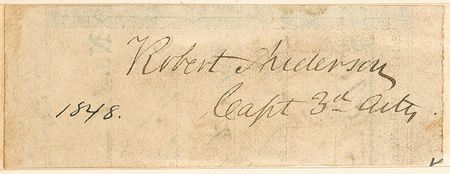 Robert Anderson
1848. Capt 3d Arty.